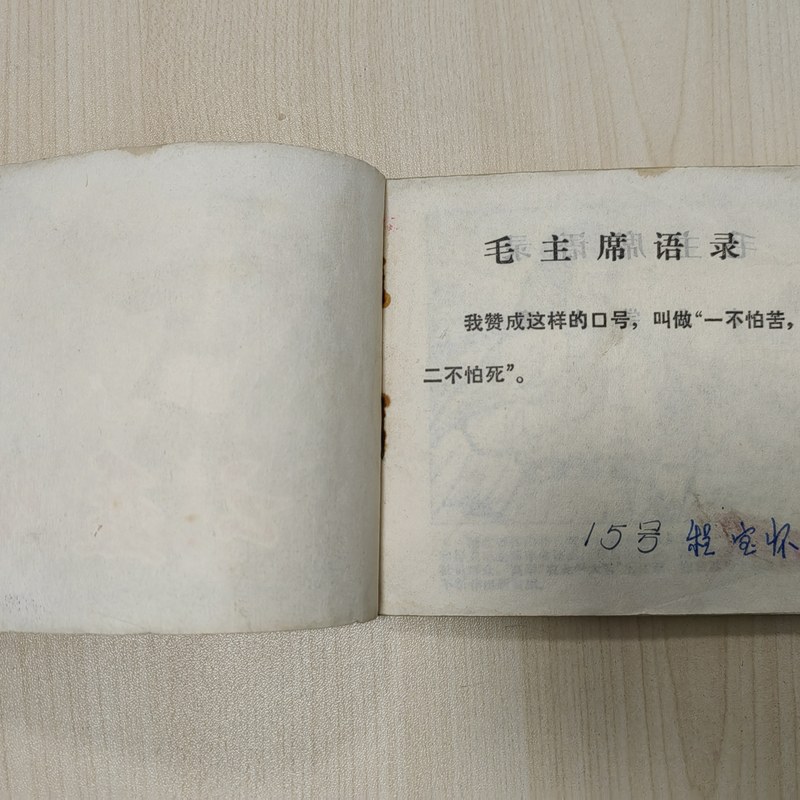 毛主席语录
我赞成这样的口号，叫做“一不怕苦，
二不怕死”。
15号 程宝怀